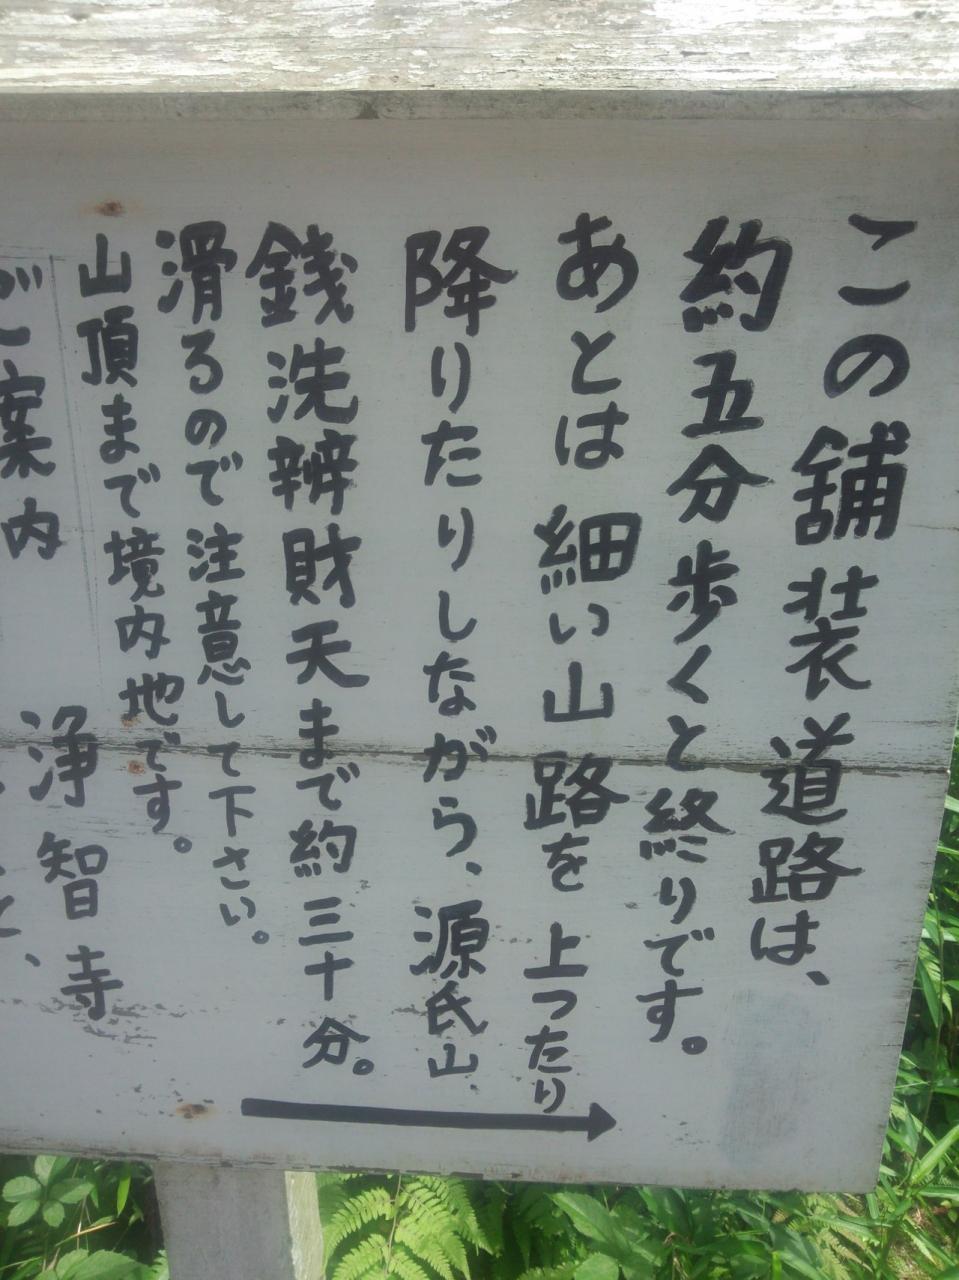 この舗装道路は、
約五分歩くと終りです。
あとは細い山路を上ったり
降りたりしながら、源氏山、
銭洗辨財天まで約三十分。
滑るので注意して下さい。
山頂まで境内地です。
浄智寺
ご案内